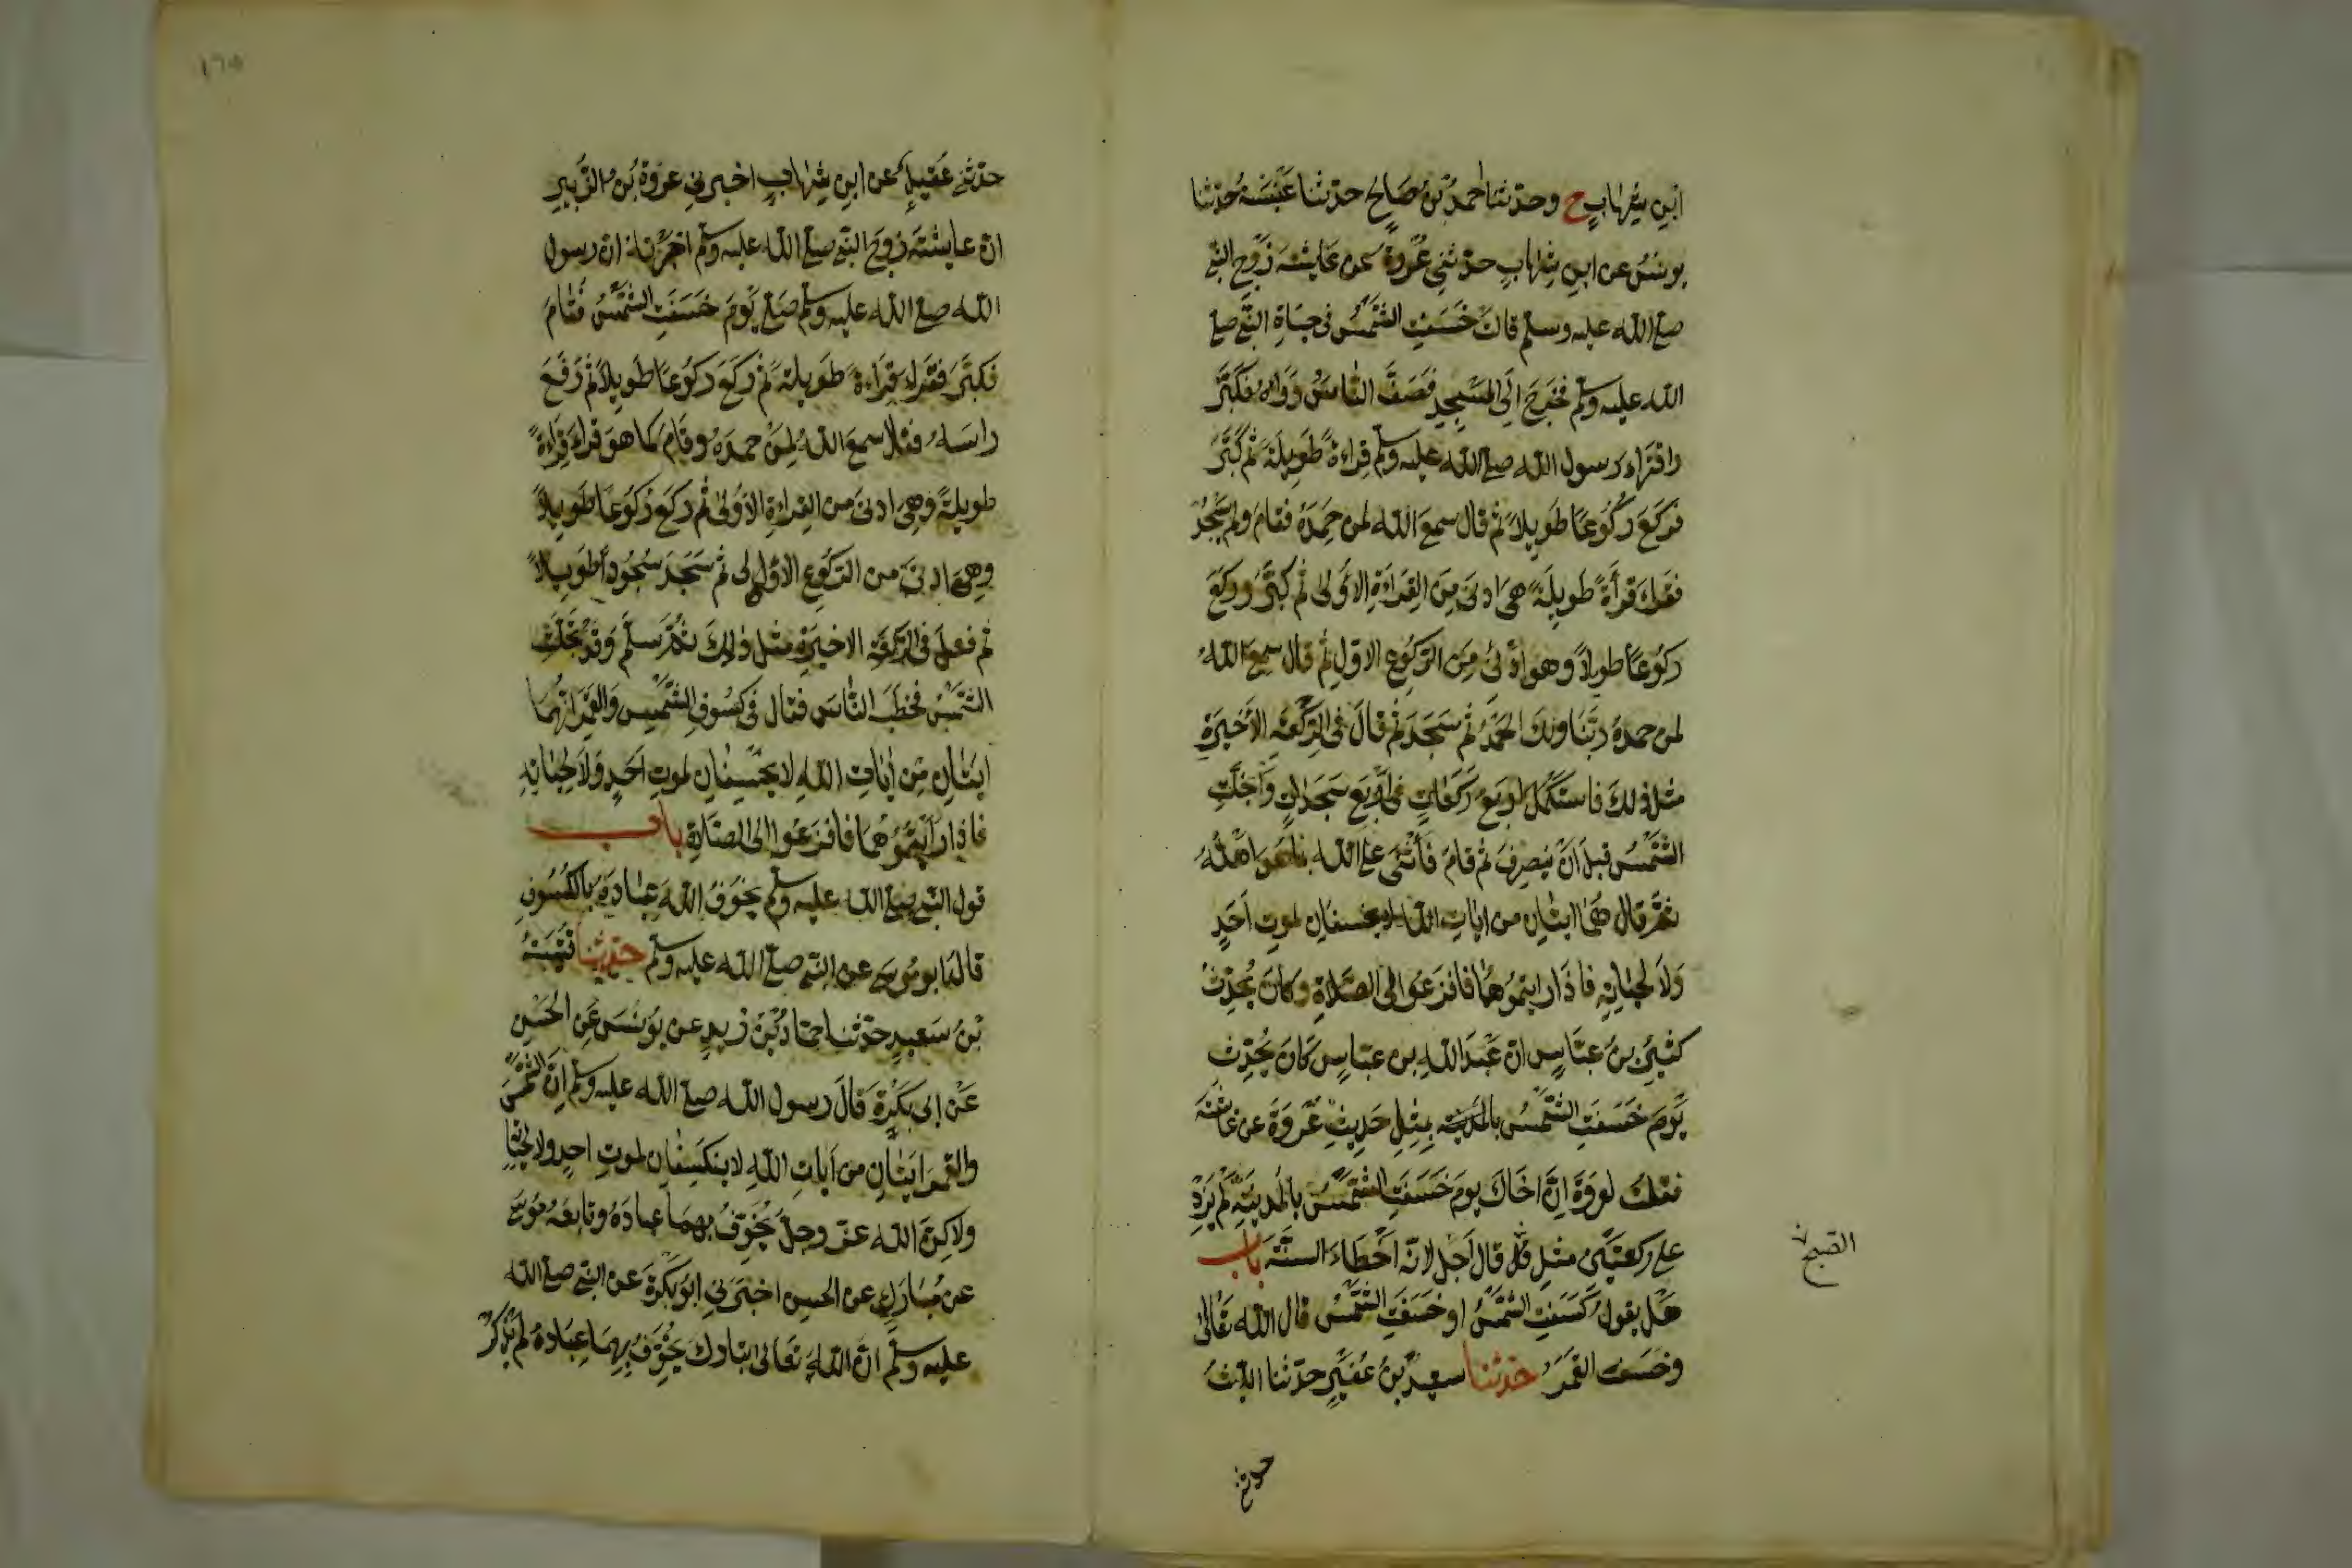 ابن شهاب ح وحدثنا احمد بن صالح حدثنا عنبسة حدثنا
يونس عن ابن شهاب حدثني عروة عن عايشة زوج النبي
صلى الله عليه وسلم قالت خسفت الشمس في حياة النبي صلى
الله عليه وسلم فخرج الى المسجد فصف الناس وراه فكبر
واقتراء رسول الله صلى الله عليه وسلم قراءة طويلة ثم كبر
فركع ركوعا طويلا ثم قال سمع الله لمن حمده فقام ولم يسجد
فقراء قرأة طويلة هي ادنى من القراءة الاولى ثم كبر وركع
ركوعا طويلا وهو ادنى من الركوع الاول ثم قال سمع الله
لمن حمده ربنا ولك الحمد ثم سجد ثم قال في الركعة الاخيرة
مثل ذلك فاستكمل اربع ركعات في اربع سجدات وانجلت
الشمس قبل ان ينصرف ثم قام فأثنى على الله بما هو اهله
ثم قال هما ايتان من ايات الله لا يخسفان لموت احد
ولا لحياته فاذا رايتموهما فافزعوا الى الصلاة وكان يحدث
كثير بن عباس ان عبد الله بن عباس كان يحدث
يوم خسفت الشمس بالمدينة بمثل حديث عروة عن عائشة
فقلت لعروة ان اخاك يوم خسفت الشمس بالمدينة لم يزد
على ركعتين مثل قال اجل لانه اخطاء السنة باب
الصبح
هل يقول كسفت الشمس او خسفت الشمس قال الله تعالى
وخسف القمر حدثنا سعيد بن عفير حدثنا الليث
حدثني
١٦٥
حدثني عقيل عن ابن شهاب اخبرني عروة بن الزبير
ان عايشة زوج النبي صلى الله عليه وسلم اخبرته ان رسول
الله صلى الله عليه وسلم صلى يوم خسفت الشمس فقام
فكبر فقراء قراءة طويلة ثم ركع ركوعا طويلا ثم رفع
راسه فقال سمع الله لمن حمده وقام كما هو قراء قراءة
طويلة وهي ادنى من القراءة الاولى ثم ركع ركوعا طويلا
وهي ادنى من الركوع الاولى ثم سجد سجودا طويلا
ثم فعل في الركعة الاخيرة مثل ذلك ثم سلم وقد تجلت
الشمس فخطب الناس فقال في كسوف الشمس والقمر انهما
ايتان من ايات الله لا يخسفان لموت احد ولا لحياته
فاذا رأيتموهما فافزعوا الى الصلاة باب
قول النبي صلى الله عليه وسلم يخوف الله عباده بالكسوف
قاله ابو موسى عن النبي صلى الله عليه وسلم حدثنا قتيبة
بن سعيد حدثنا حماد بن زيد عن يونس عن الحسن
عن ابي بكرة قال رسول الله صلى الله عليه وسلم ان الشمس
والقمر ايتان من ايات الله لا ينكسفان لموت احد ولا لحياته
ولاكن الله عز وجل يخوف بهما عباده وتابعه موسى
عن مبارك عن الحسن اخبرني ابو بكرة عن النبي صلى الله
عليه وسلم ان الله تعالى تبارك يخوف بهما عباده لم يذكر